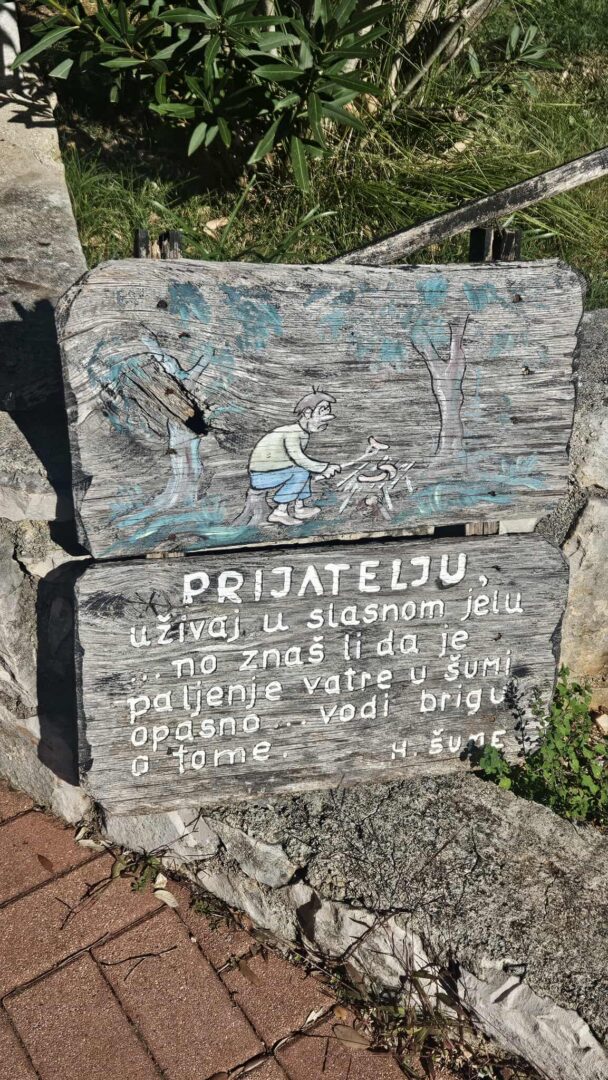 PRIJATELJU,
uživaj u slasnom jelu
... no znaš li da je
paljenje vatre u šumi
opasno... vodi brigu
o tome.
H. ŠUME